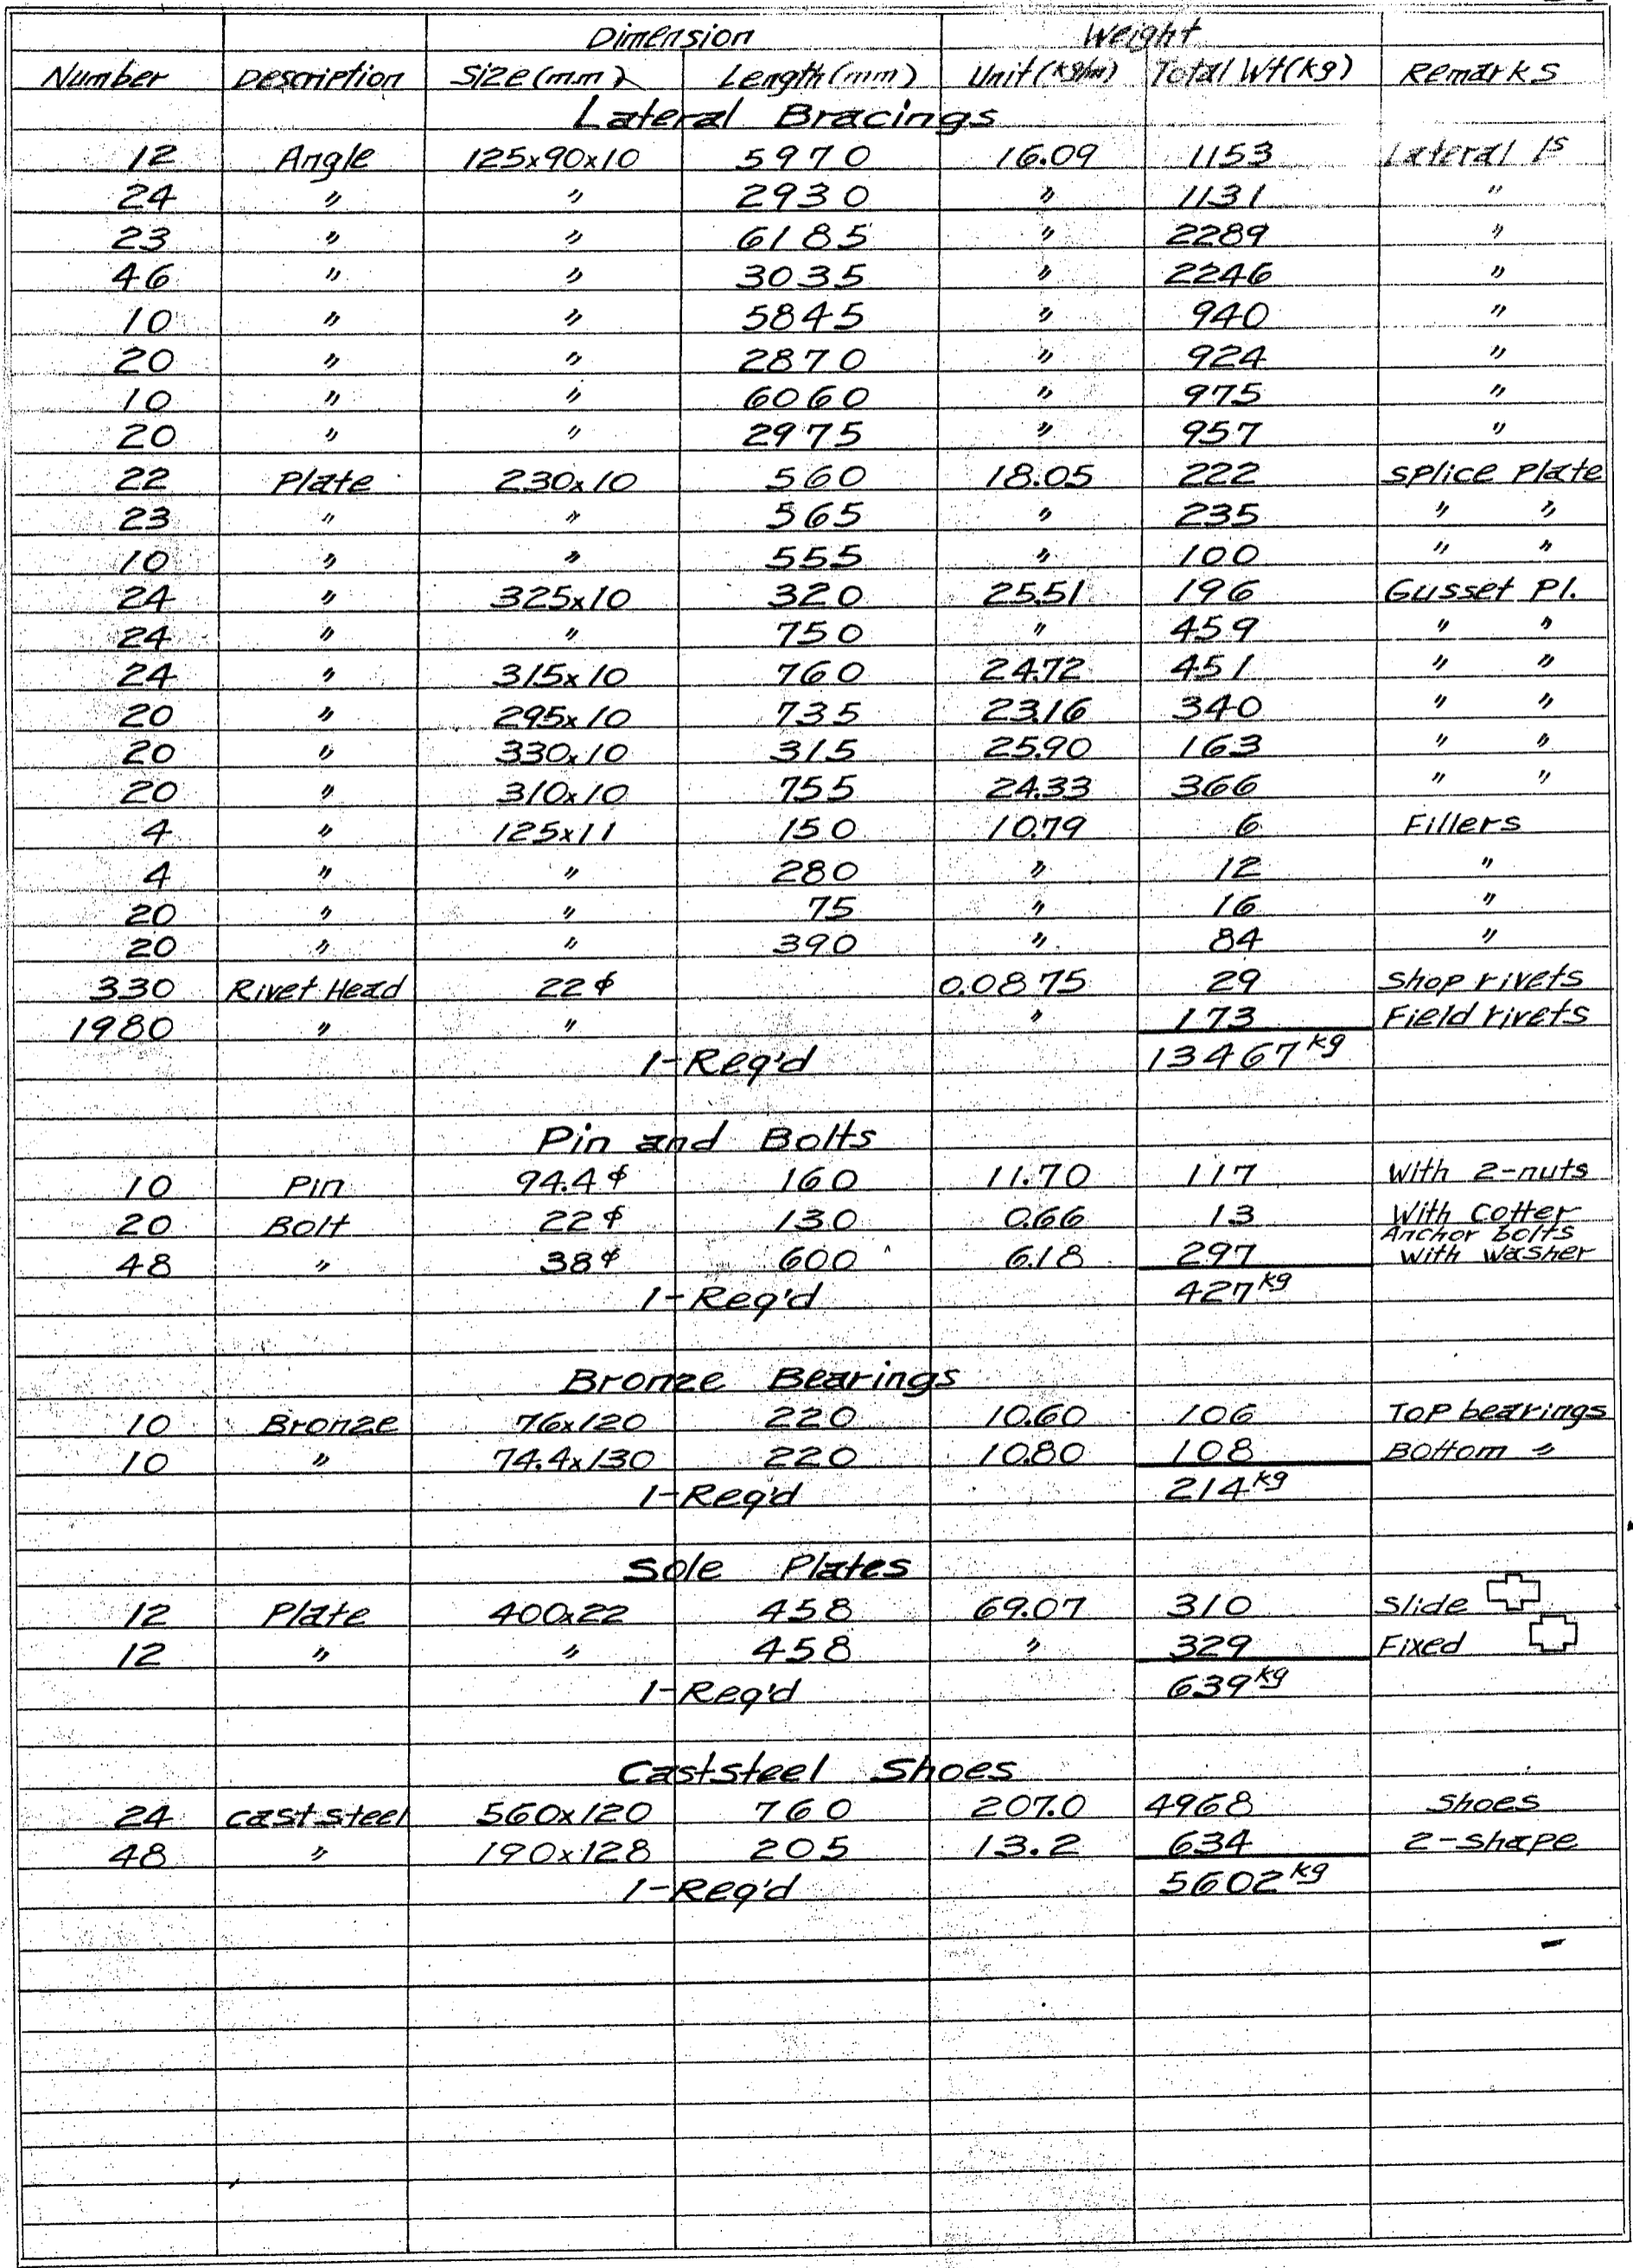 Dimension Weight
Number Description Size (mm) Length (mm) Unit (kg/m) Total Wt (kg) Remarks
Lateral Bracings
12 Angle 125x90x10 5970 16.09 1153 Lateral Ls
24 〃 〃 2930 〃 1131 〃
23 〃 〃 6185 〃 2289 〃
46 〃 〃 3035 〃 2246 〃
10 〃 〃 5845 〃 940 〃
20 〃 〃 2870 〃 924 〃
10 〃 〃 6060 〃 975 〃
20 〃 〃 2975 〃 957 〃
22 Plate 230x10 560 18.05 222 Splice Plate
23 〃 〃 565 〃 235 〃 〃
10 〃 〃 555 〃 100 〃 〃
24 〃 325x10 320 25.51 196 Gusset Pl.
24 〃 〃 750 〃 459 〃 〃
24 〃 315x10 760 24.72 451 〃 〃
20 〃 295x10 735 23.16 340 〃 〃
20 〃 330x10 315 25.90 163 〃 〃
20 〃 310x10 755 24.33 366 〃 〃
4 〃 125x11 150 10.79 6 Fillers
4 〃 〃 280 〃 12 〃
20 〃 〃 75 〃 16 〃
20 〃 〃 390 〃 84 〃
330 Rivet Head 22φ 0.0875 29 Shop rivets
1980 〃 〃 〃 173 Field rivets
1-Req'd 13467 kg
Pin and Bolts
10 Pin 94.4φ 160 11.70 117 With 2-nuts
20 Bolt 22φ 130 0.66 13 With Cotter
48 〃 38φ 600 6.18 297 Anchor bolts With Washer
1-Req'd 427 kg
Bronze Bearings
10 Bronze 76x120 220 10.60 106 Top bearings
10 〃 74.4x130 220 10.80 108 Bottom 〃
1-Req'd 214 kg
Sole Plates
12 Plate 400x22 458 69.07 310 Slide
12 〃 〃 458 〃 329 Fixed
1-Req'd 639 kg
Caststeel Shoes
24 cast steel 560x120 760 207.0 4968 Shoes
48 〃 190x128 205 13.2 634 2-shape
1-Req'd 5602 kg